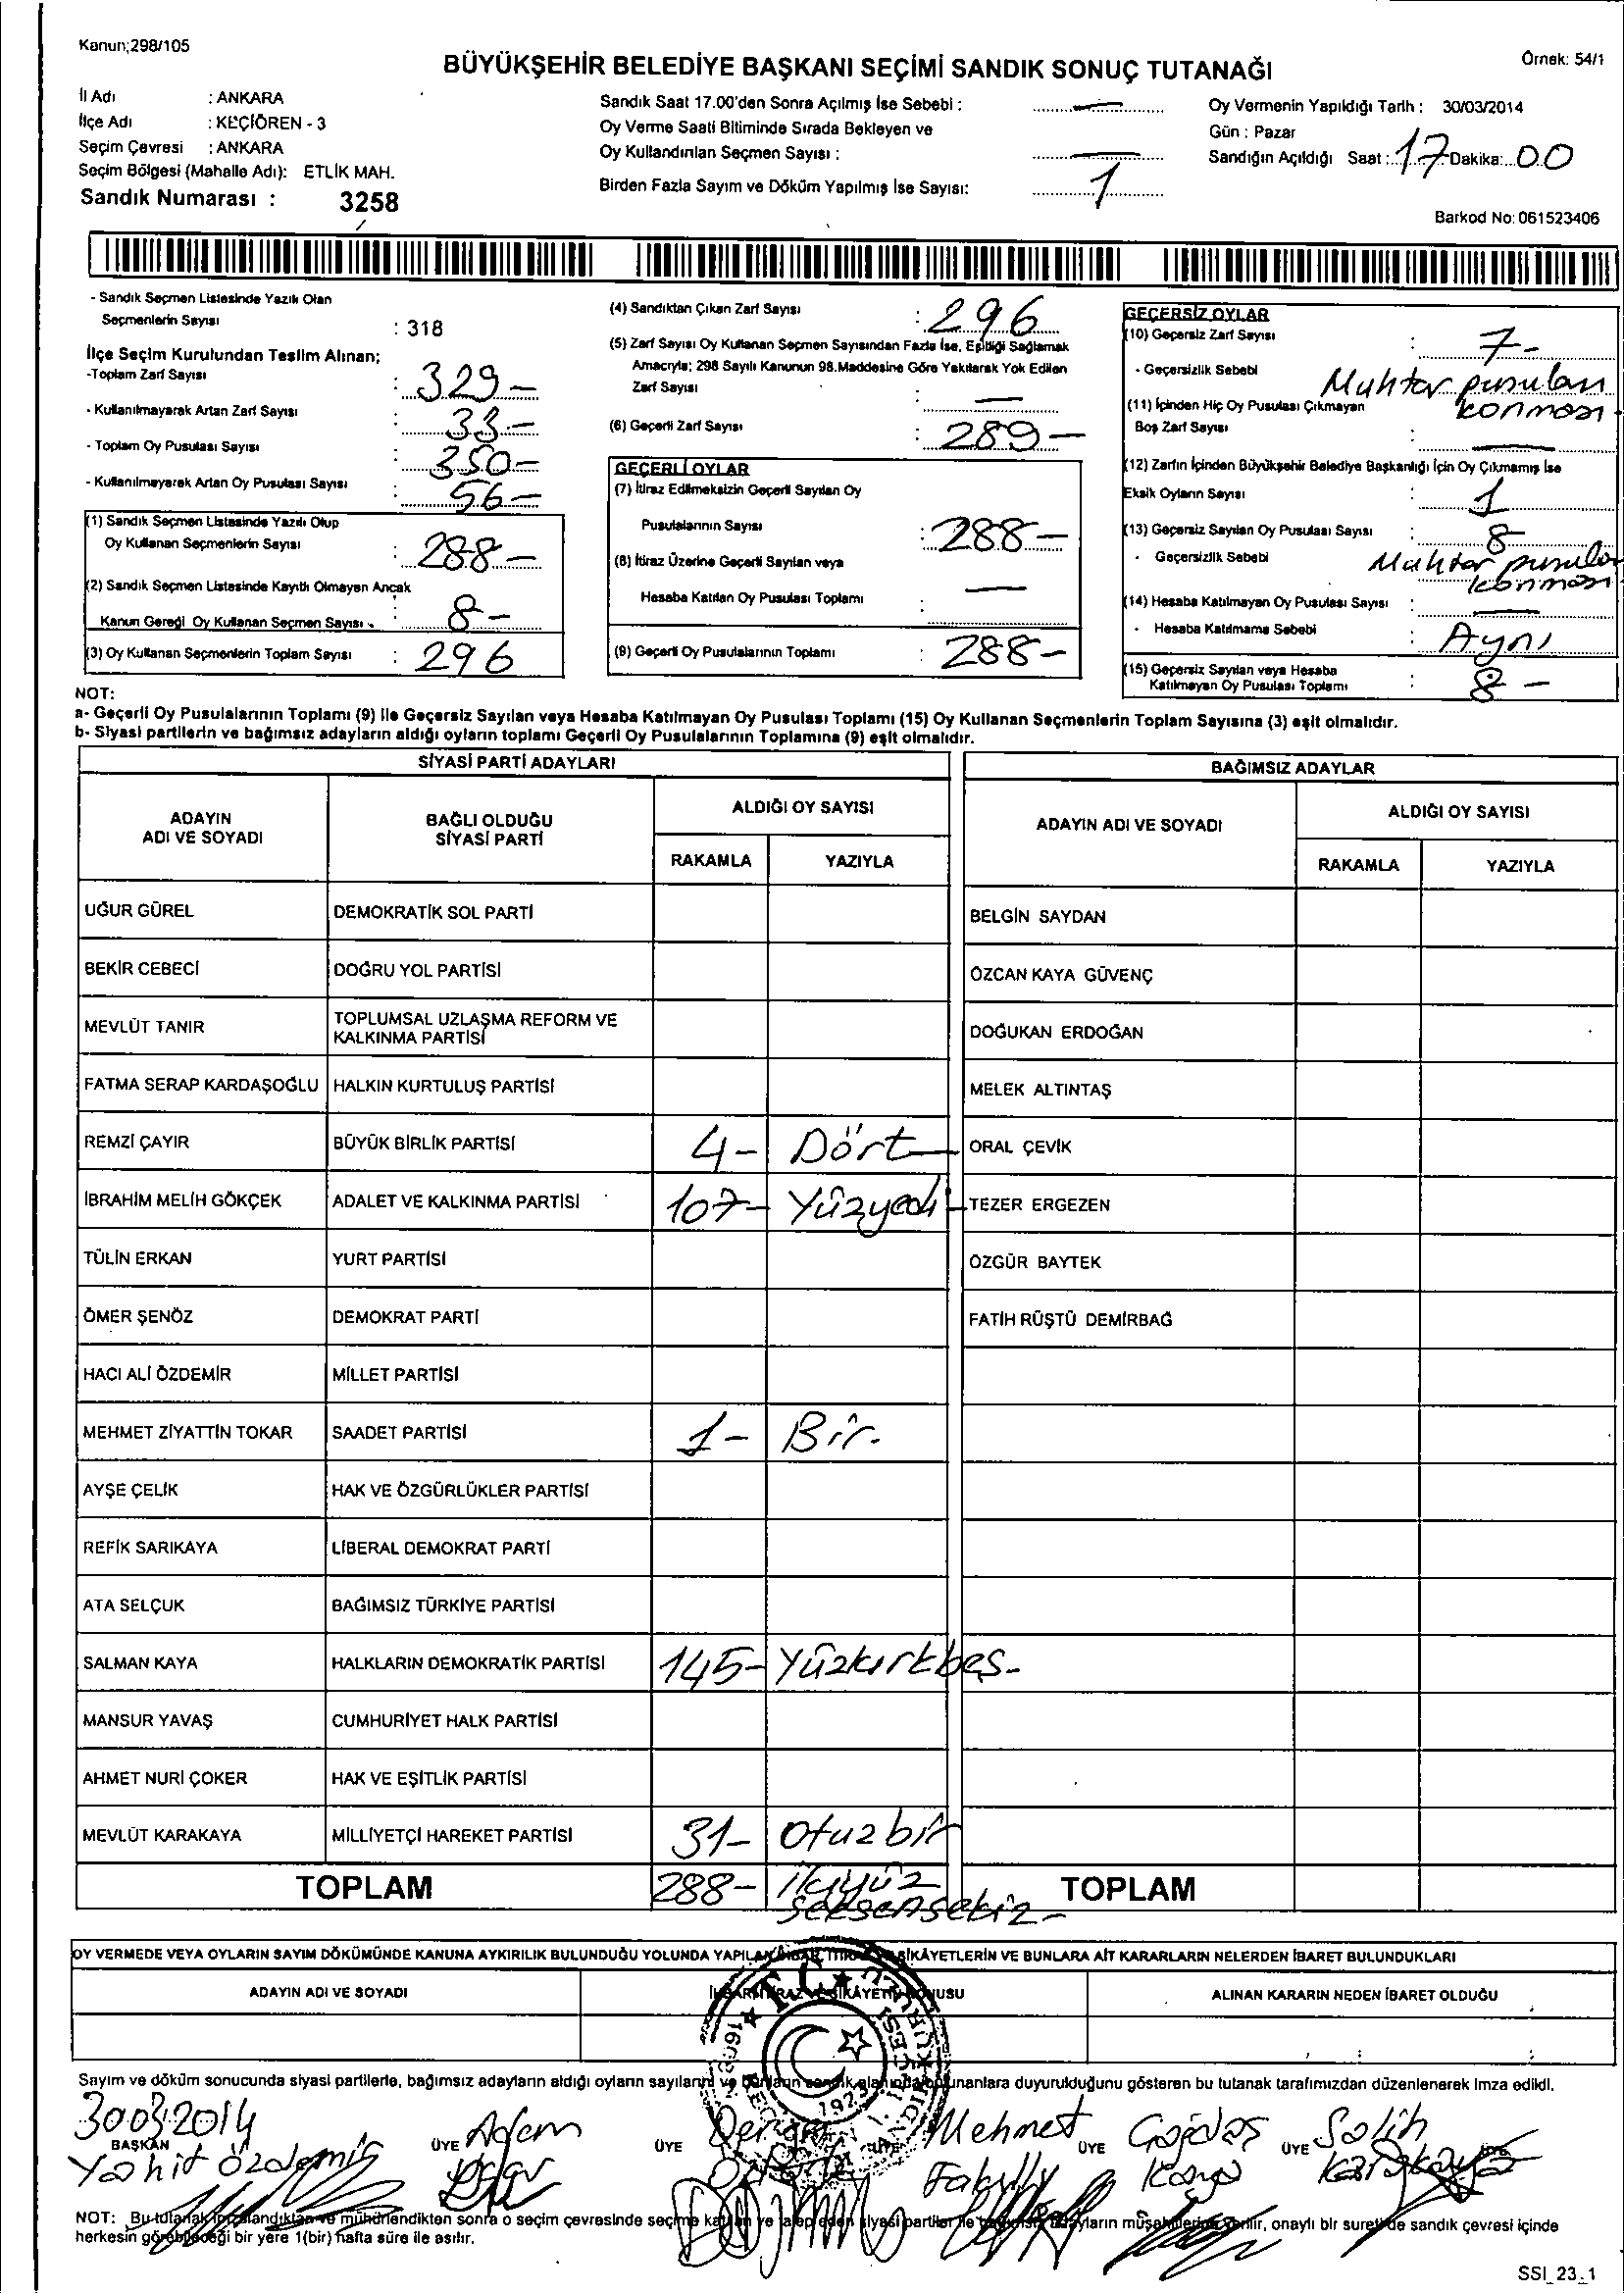 Kanun;298/105
Örnek: 54/1
BÜYÜKŞEHİR BELEDİYE BAŞKANI SEÇİMİ SANDIK SONUÇ TUTANAĞI
İl Adı : ANKARA
İlçe Adı : KEÇİÖREN - 3
Seçim Çevresi : ANKARA
Seçim Bölgesi (Mahalle Adı): ETLİK MAH.
Sandık Numarası : 3258
Sandık Saat 17.00'den Sonra Açılmış İse Sebebi : —
Oy Verme Saati Bitiminde Sırada Bekleyen ve
Oy Kullandırılan Seçmen Sayısı : —
Birden Fazla Sayım ve Döküm Yapılmış İse Sayısı: 1
Oy Vermenin Yapıldığı Tarih : 30/03/2014
Gün : Pazar
Sandığın Açıldığı Saat : 17 Dakika: 00
Barkod No: 061523406
- Sandık Seçmen Listesinde Yazılı Olan
Seçmenlerin Sayısı : 318
İlçe Seçim Kurulundan Teslim Alınan;
-Toplam Zarf Sayısı : 329-
- Kullanılmayarak Artan Zarf Sayısı : 33-
- Toplam Oy Pusulası Sayısı : 350-
- Kullanılmayarak Artan Oy Pusulası Sayısı : 56-
(1) Sandık Seçmen Listesinde Yazılı Olup
Oy Kullanan Seçmenlerin Sayısı : 288-
(2) Sandık Seçmen Listesinde Kayıtlı Olmayan Ancak
Kanun Gereği Oy Kullanan Seçmen Sayısı : 8-
(3) Oy Kullanan Seçmenlerin Toplam Sayısı : 296
(4) Sandıktan Çıkan Zarf Sayısı : 296
(5) Zarf Sayısı Oy Kullanan Seçmen Sayısından Fazla İse, Eşitliği Sağlamak
Amacıyla; 298 Sayılı Kanunun 98.Maddesine Göre Yakılarak Yok Edilen
Zarf Sayısı : —
(6) Geçerli Zarf Sayısı : 289-
GEÇERLİ OYLAR
(7) İtiraz Edilmeksizin Geçerli Sayılan Oy
Pusulalarının Sayısı : 288-
(8) İtiraz Üzerine Geçerli Sayılan veya
Hesaba Katılan Oy Pusulası Toplamı : —
(9) Geçerli Oy Pusulalarının Toplamı : 288-
GEÇERSİZ OYLAR
(10) Geçersiz Zarf Sayısı : 7-
- Geçersizlik Sebebi : Muhtar pusulası
konması
(11) İçinden Hiç Oy Pusulası Çıkmayan
Boş Zarf Sayısı : —
(12) Zarfın İçinden Büyükşehir Belediye Başkanlığı İçin Oy Çıkmamış İse
Eksik Oyların Sayısı : 1
(13) Geçersiz Sayılan Oy Pusulası Sayısı : 8
- Geçersizlik Sebebi Muhtar pusula
konması
(14) Hesaba Katılmayan Oy Pusulası Sayısı : —
- Hesaba Katılmama Sebebi : Aynı
(15) Geçersiz Sayılan veya Hesaba
Katılmayan Oy Pusulası Toplamı : 8-
NOT:
a- Geçerli Oy Pusulalarının Toplamı (9) ile Geçersiz Sayılan veya Hesaba Katılmayan Oy Pusulası Toplamı (15) Oy Kullanan Seçmenlerin Toplam Sayısına (3) eşit olmalıdır.
b- Siyasi partilerin ve bağımsız adayların aldığı oyların toplamı Geçerli Oy Pusulalarının Toplamına (9) eşit olmalıdır.
SİYASİ PARTİ ADAYLARI
ADAYIN ADI VE SOYADI
BAĞLI OLDUĞU SİYASİ PARTİ
ALDIĞI OY SAYISI
RAKAMLA YAZIYLA
UĞUR GÜREL DEMOKRATİK SOL PARTİ
BEKİR CEBECİ DOĞRU YOL PARTİSİ
MEVLÜT TANIR TOPLUMSAL UZLAŞMA REFORM VE
KALKINMA PARTİSİ
FATMA SERAP KARDAŞOĞLU HALKIN KURTULUŞ PARTİSİ
REMZİ ÇAYIR BÜYÜK BİRLİK PARTİSİ 4- Dört-
İBRAHİM MELİH GÖKÇEK ADALET VE KALKINMA PARTİSİ 107- Yüzyedi-
TÜLİN ERKAN YURT PARTİSİ
ÖMER ŞENÖZ DEMOKRAT PARTİ
HACI ALİ ÖZDEMİR MİLLET PARTİSİ
MEHMET ZİYATTİN TOKAR SAADET PARTİSİ 1- Bir.
AYŞE ÇELİK HAK VE ÖZGÜRLÜKLER PARTİSİ
REFİK SARIKAYA LİBERAL DEMOKRAT PARTİ
ATA SELÇUK BAĞIMSIZ TÜRKİYE PARTİSİ
SALMAN KAYA HALKLARIN DEMOKRATİK PARTİSİ 145- Yüzkırkbeş-
MANSUR YAVAŞ CUMHURİYET HALK PARTİSİ
AHMET NURİ ÇOKER HAK VE EŞİTLİK PARTİSİ
MEVLÜT KARAKAYA MİLLİYETÇİ HAREKET PARTİSİ 31- Otuzbir
TOPLAM 288- İkiyüz
seksensekiz-
BAĞIMSIZ ADAYLAR
ADAYIN ADI VE SOYADI
ALDIĞI OY SAYISI
RAKAMLA YAZIYLA
BELGİN SAYDAN
ÖZCAN KAYA GÜVENÇ
DOĞUKAN ERDOĞAN
MELEK ALTINTAŞ
ORAL ÇEVİK
TEZER ERGEZEN
ÖZGÜR BAYTEK
FATİH RÜŞTÜ DEMİRBAĞ
TOPLAM
OY VERMEDE VEYA OYLARIN SAYIM DÖKÜMÜNDE KANUNA AYKIRILIK BULUNDUĞU YOLUNDA YAPILAN İHBAR, İTİRAZ VE ŞİKAYETLERİN VE BUNLARA AİT KARARLARIN NELERDEN İBARET BULUNDUKLARI
ADAYIN ADI VE SOYADI
İHBAR İTİRAZ VE ŞİKAYETİN KONUSU
ALINAN KARARIN NEDEN İBARET OLDUĞU
T.C.
1923
Sayım ve döküm sonucunda siyasi partilerle, bağımsız adayların aldığı oyların sayılarını ve bunların sandık alanında bulunanlara duyurulduğunu gösteren bu tutanak tarafımızdan düzenlenerek imza edildi.
30032014
BAŞKAN ÜYE Adem ÜYE ÜYE Mehmet ÜYE ÜYE Salih
Özdemir Kaya Karakaya
NOT: Bu tutanak imzalandıktan ve mühürlendikten sonra o seçim çevresinde seçime katılan ve talep eden siyasi partiler ile bağımsız adayların müşahitlerine verilir, onaylı bir sureti de sandık çevresi içinde
herkesin görebileceği bir yere 1(bir) hafta süre ile asılır.
SSI_23_1